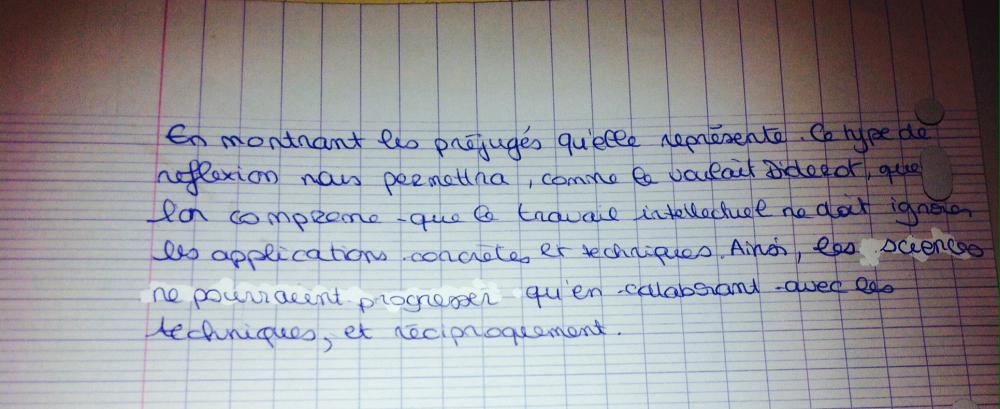 En montrant les préjugés qu'elle représente. Ce type de
reflexion nous permettra, comme le voulait Diderot, que
l'on comprene que le travail intellectuel ne doit ignorer
les applications concrètes et techniques. Ainsi, les sciences
ne pourraient progresser qu'en calaborant avec les
techniques, et réciproquement.